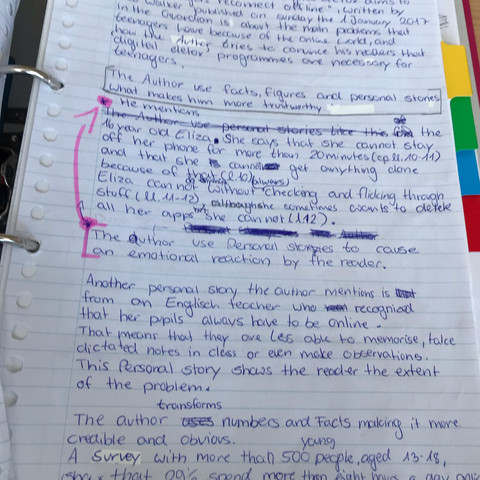 Walker reconnect offline", written by
in the Guardian is published on sunday the 1 January 2017
teenagers have because of the online world, and
how the Author tries to convince his readers that
digital detox programmes are necessary for
teenagers.
The Author use facts, figures and personal stories
what makes him more trustworthy
He mentions
The Author use personal stories like this the
16 year old Eliza. She says that she cannot stay
off her phone for more than 20 minutes (cp.ll. 10-11)
and that she cannot get anything done
because of that (l.10) (always)
Eliza can not without checking and flicking through
stuff (ll. 11-12) although she sometimes wants to delete
all her apps she can not (l.12).
The Author use Personal stories to cause
an emotional reaction by the reader.
Another personal story the author mentions is
from an Englisch teacher who recognised
that her pupils always have to be online.
That means that they are less able to memorise, take
dictated notes in class or even make observations.
This Personal story shows the reader the extent
of the problem.
transforms
The author uses numbers and Facts making it more
credible and obvious.
young
A Survey with more than 500 people, aged 13-18,
show that 99% spend more than eight hours a day